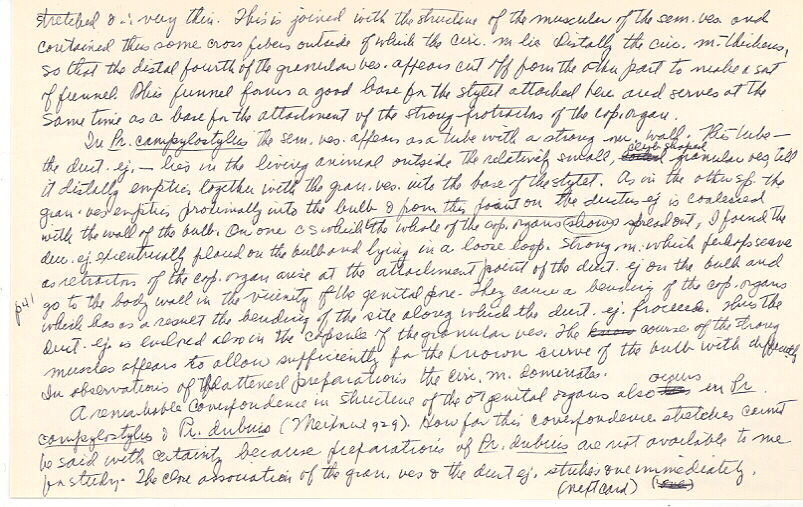 stretched & ∴ very thin. This is joined with the structure of the muscular of the sem. ves. and
contained thus some cross fibers outside of which the circ. m. lie. Distally the circ. m. thickens,
so that the distal fourth of the granular ves. appears cut off from the other part to make a sort
of funnel. This funnel forms a good base for the stylet attached here and serves at the
same time as a base for the attachment of the strong protractors of the cop. organ.
In Pr. campylostylus the sem. ves. appears as a tube with a strong m. wall. This tube –
the duct. ej. – lies in the living animal outside the relatively small, club shaped granular ves. till
it distally empties together with the gran. ves. into the base of the stylet. As in the other sp. the
gran. ves empties proximally into the bulb & from this point on the ductus ej is coalesced
with the wall of the bulb. On one cs which the whole of the cop. organs (shows) spread out, I found the
duc. ej. excentrically placed on the bulb and lying in a loose loop. Strong m. which perhaps serve
as retractors of the cop. organ arise at the attachment point of the duct. ej on the bulb and
go to the body wall in the vicinity of the genital pore. They cause a bending of the cop. organs
p41 which has as a result the bending of the site along which the duct. ej. proceeds. Thus the
duct. ej. is enclosed also in the capsule of the granular ves. The course of the strong
muscles appears to allow sufficiently for the known curve of the bulb with difficulty
In observations of flattened preparations the circ. m. dominates.
A remarkable correspondence in structure of the genital organs also occurs in Pr.
campylostylus & Pr. dubuis (Meixner 1929). How far this correspondence stretches cannot
be said with certainty because preparations of Pr. dubuis are not available to me
for study. The close association of the gran. ves & the duct ej. strikes one immediately.
(next card)